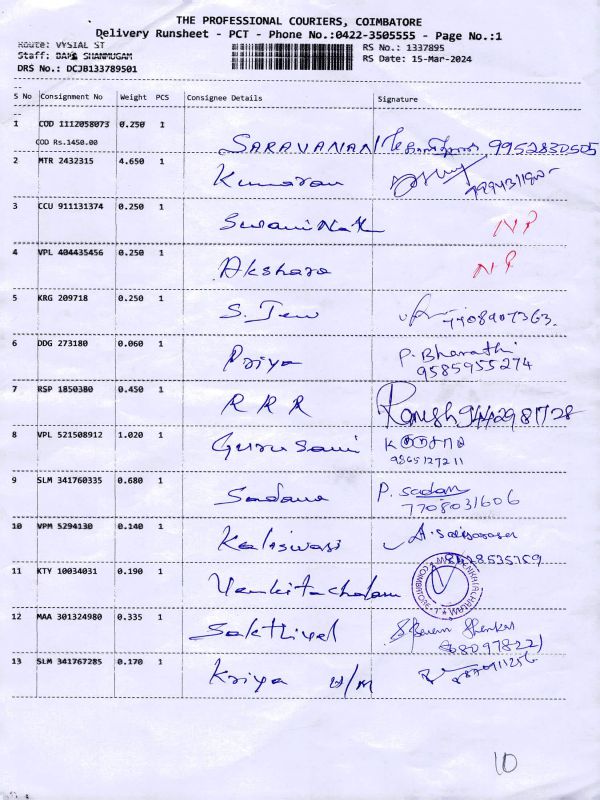 THE PROFESSIONAL COURIERS, COIMBATORE
Delivery Runsheet - PCT - Phone No.:0422-3505555 - Page No.:1
Route: VYSIAL ST
RS No.: 1337895
Staff: BABU SHANMUGAM
RS Date: 15-Mar-2024
DRS No.: DCJB133789501
S No Consignment No Weight PCS Consignee Details Signature
1 COD 1112058073 0.250 1
COD Rs.1450.00
SARAVANAN 9952830505
2 MTR 2432315 4.650 1
Kumaran
3 CCU 911131374 0.250 1
SwamiNath NP
4 VPL 404435456 0.250 1
Akshara NP
5 KRG 209718 0.250 1
S. Jew 7708907363.
6 DDG 273180 0.060 1
Priya P. Bharathi
9585955274
7 RSP 1850380 0.450 1
R R R Ramesh
8 VPL 521508912 1.020 1
Guru Sami
9 SLM 341760335 0.680 1
Sadana P. Sadan
7708031606
10 VPM 5294130 0.140 1
Kaliswari
11 KTY 10034031 0.190 1
Venkitachalam
12 MAA 301324980 0.335 1
Sakthivel
13 SLM 341767285 0.170 1
Kriya
10